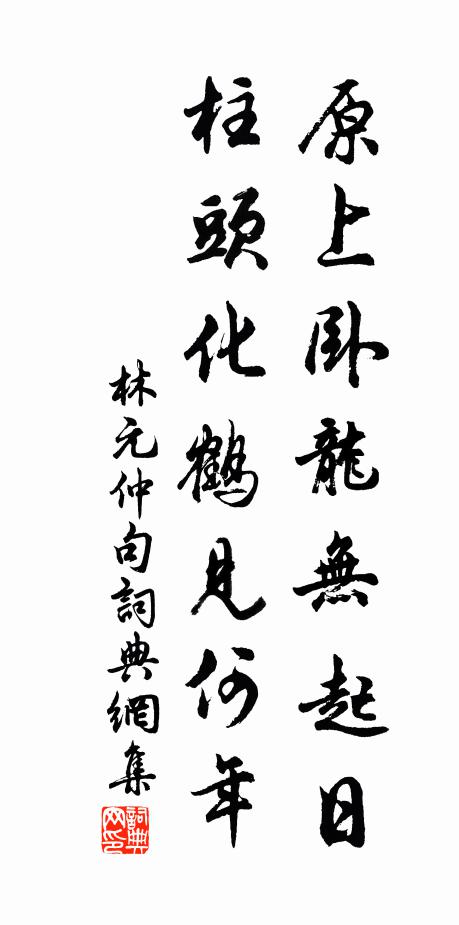 原上卧龍無起日
柱頭化鶴見何年
林元仲句詞典網集
詞典網印